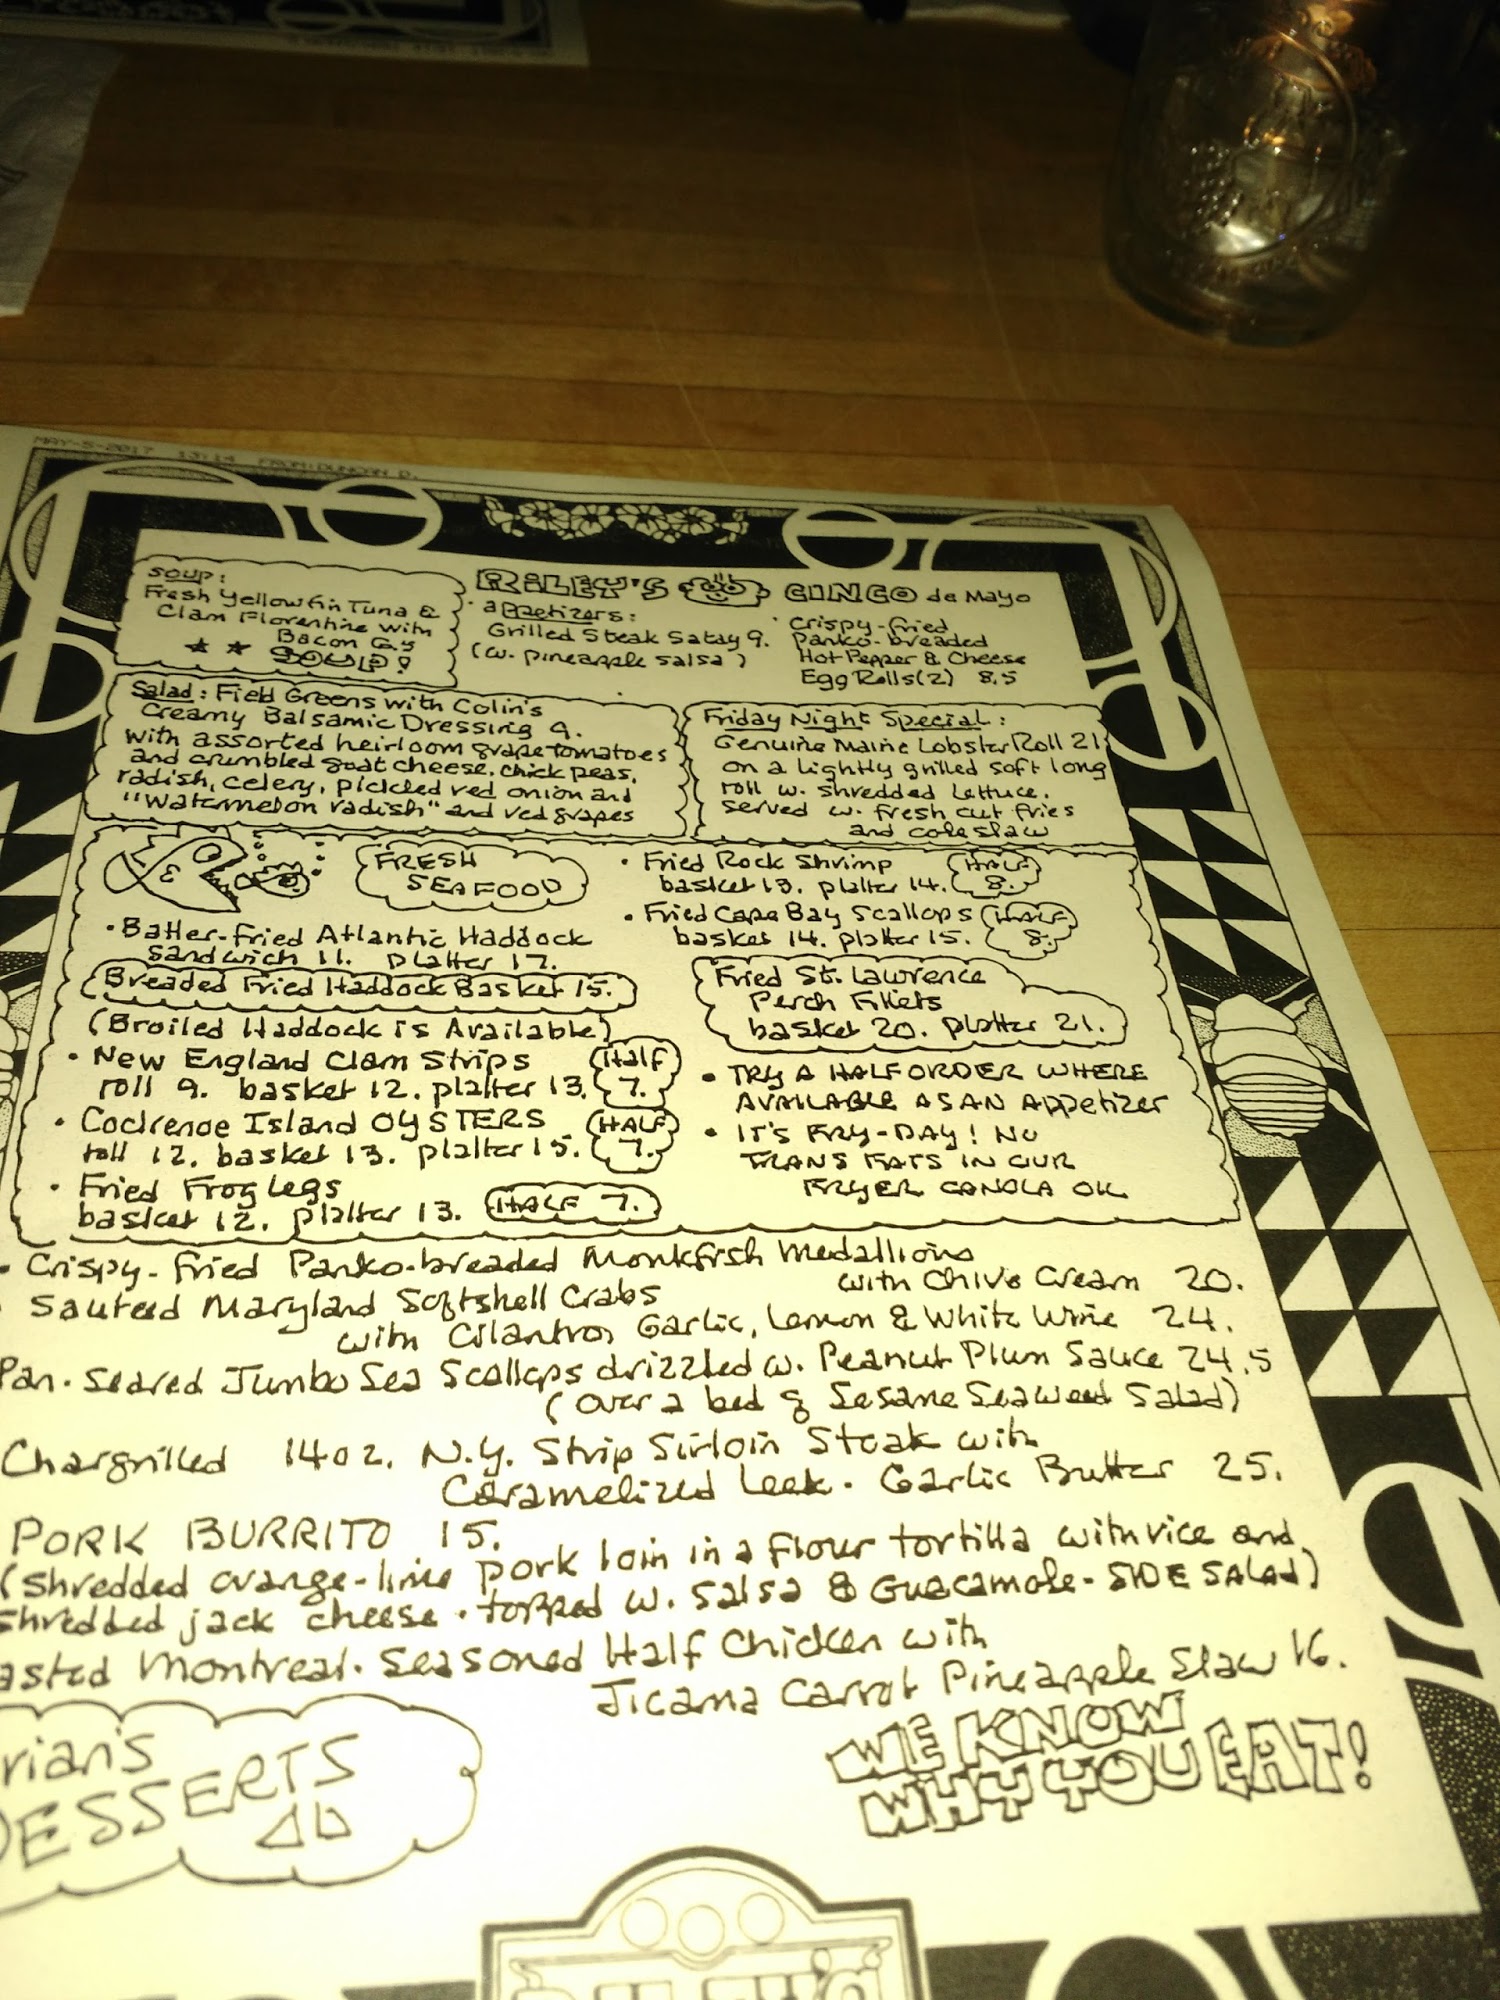 MAY-5-2017 13:14 FROM:DUNCAN D.
SOUP:
Fresh Yellowfin Tuna &
Clam Florentine with
Bacon 6.5
SOUP!
RILEY'S CINCO de Mayo
appetizers:
Grilled Steak Satay 9.
(w. pineapple salsa)
Crispy-fried
Panko-breaded
Hot Pepper & Cheese
Egg Rolls (2) 8.5
Salad: Field Greens with Colin's
Creamy Balsamic Dressing 9.
with assorted heirloom grape tomatoes
and crumbled goat cheese, chick peas,
radish, celery, pickled red onion and
"watermelon radish" and red grapes
Friday Night Special:
Genuine Maine Lobster Roll 21
on a lightly grilled soft long
roll w. shredded lettuce.
served w. fresh cut fries
and coleslaw
FRESH
SEAFOOD
• Batter-fried Atlantic Haddock
sandwich 11. platter 17.
Breaded Fried Haddock Basket 15.
(Broiled Haddock is Available)
• New England Clam Strips
roll 9. basket 12. platter 13.
Half
7.
• Cockenoe Island OYSTERS
roll 12. basket 13. platter 15.
HALF
7.
• Fried Frog Legs
basket 12. platter 13. HALF 7.
• Fried Rock Shrimp
basket 13. platter 14.
HALF
8.
• Fried Cape Bay Scallops
basket 14. platter 15.
HALF
8.
Fried St. Lawrence
Perch Fillets
basket 20. platter 21.
• TRY A HALF ORDER WHERE
AVAILABLE AS AN APPetizer
• IT'S FRY-DAY! NO
TRANS FATS IN OUR
FRYER CANOLA OIL
• Crispy-fried Panko-breaded Monkfish Medallions
with Chive Cream 20.
Sauteed Maryland Softshell Crabs
with Cilantro, Garlic, Lemon & White Wine 24.
Pan-Seared Jumbo Sea Scallops drizzled w. Peanut Plum Sauce 24.5
(over a bed of Sesame Seaweed Salad)
Chargrilled 14oz. N.Y. Strip Sirloin Steak with
Caramelized Leek-Garlic Butter 25.
PORK BURRITO 15.
(shredded orange-lime pork loin in a flour tortilla with rice and
shredded jack cheese • topped w. salsa & Guacamole - SIDE SALAD)
asted Montreal-Seasoned Half Chicken with
Jicama Carrot Pineapple Slaw 16.
rian's
DESSERTS
WE KNOW
WHY YOU EAT!